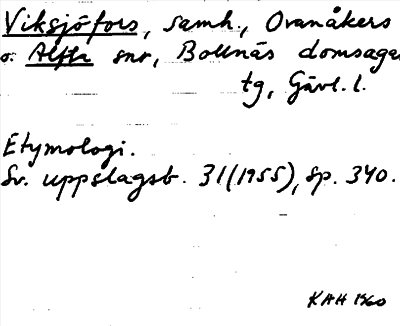 Viksjöfors, samh., Ovanåkers
o. Alfta snr, Bollnäs domsaga
tg, Gävl. l.
Etymologi.
Sv. uppslagsb. 31(1955), sp. 340.
KHH 1960